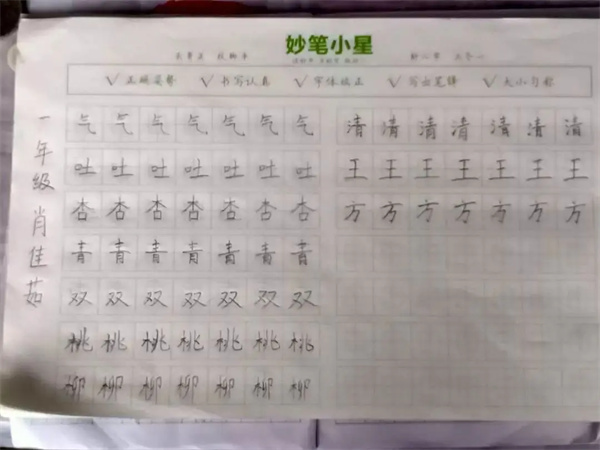 妙笔小星
正确姿势 书写认真 字体规正 写出笔锋 大小匀称
一年级 肖佳茹
气 气 气 气 气 气 气
吐 吐 吐 吐 吐 吐 吐
杏 杏 杏 杏 杏 杏 杏
青 青 青 青 青 青 青
双 双 双 双 双 双 双
桃 桃 桃 桃 桃 桃 桃
柳 柳 柳 柳 柳 柳 柳
清 清 清 清 清 清 清
王 王 王 王 王 王 王
方 方 方 方 方 方 方